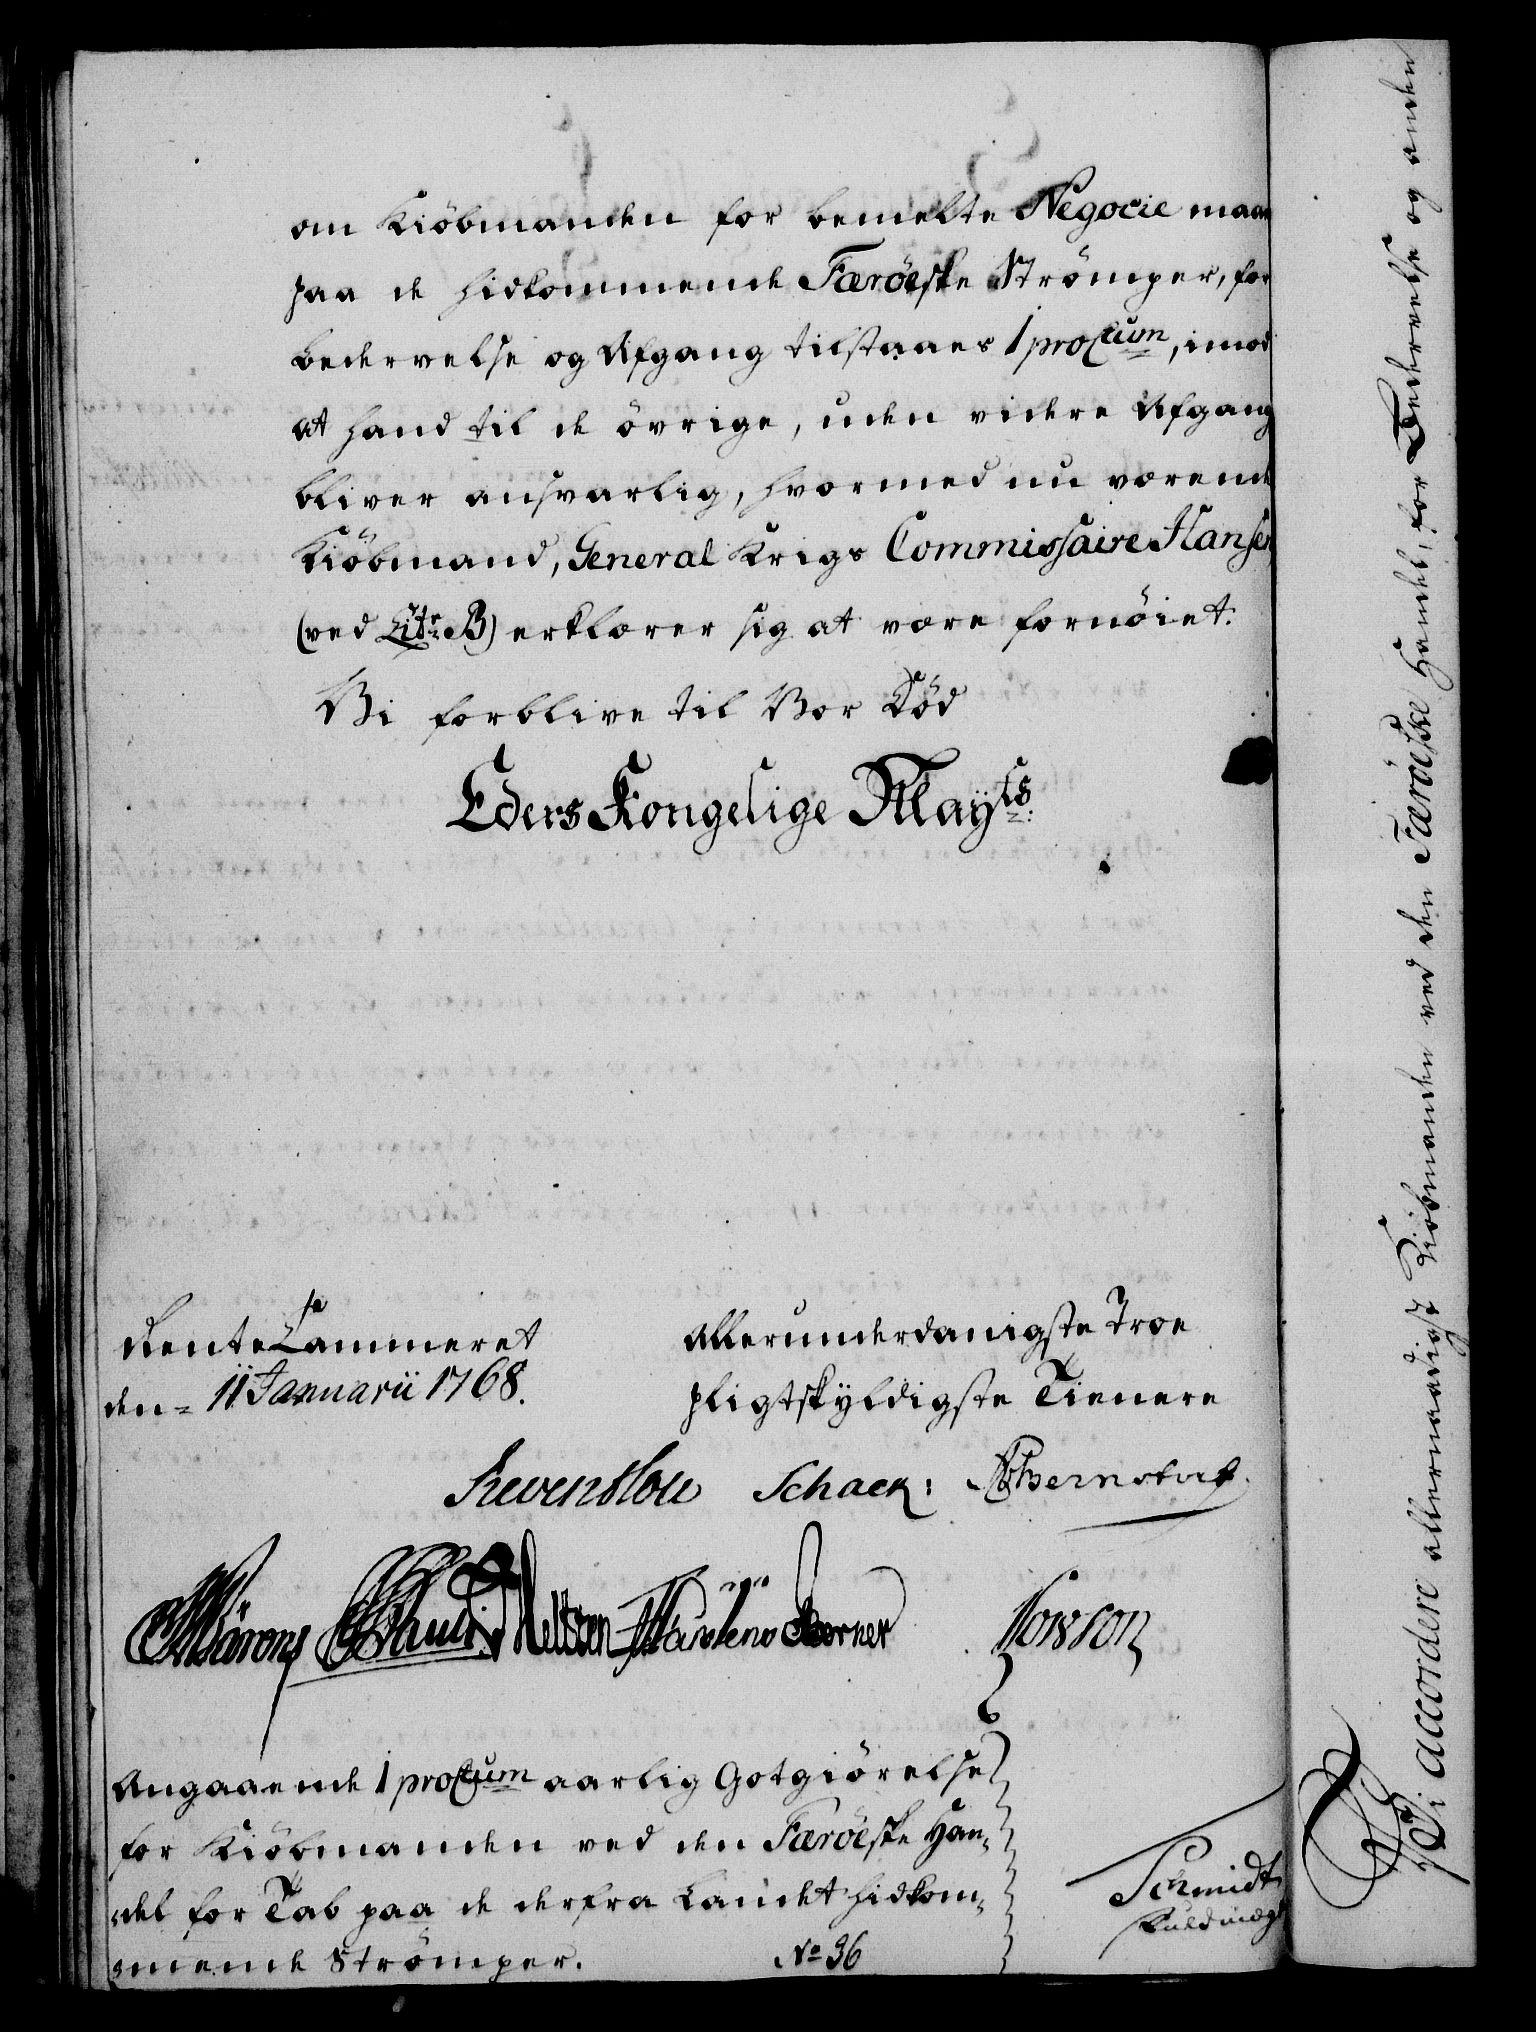 om Kiöbmanden for bemelte Negocie maae
paa de hidkommende Færöeske Strömper, for
bedervelse og Afgang tilstaaes 1 proCtum, imod
at hand til de övrige, uden videre Afgang
bliver ansvarlig, hvormed nu værende
Kiöbmand, General Krigs Commissaire Hansen
(ved Litr: B) erklærer sig at være fornöiet.
Vi forblive til Vor Död
Eders Kongelige Mayts:
RenteCammeret
den = 11 Januarii 1768.
allerunderdanigste Troe
pligtskyldigste Tienere
Reventlou Schack: Bernstorf.
Körner
Angaaende 1 proCtum aarlig Gotgiörelse
for Kiöbmanden ved den Færöeske Han-
del for Tab paa de derfra Landet hidkom-
mende Strömper. No 36
Schmidt
Fuldmægt
Vi accordere allernaadigst Kiöbmanden ved den Færöeske Handel, for Bedervelse og anden